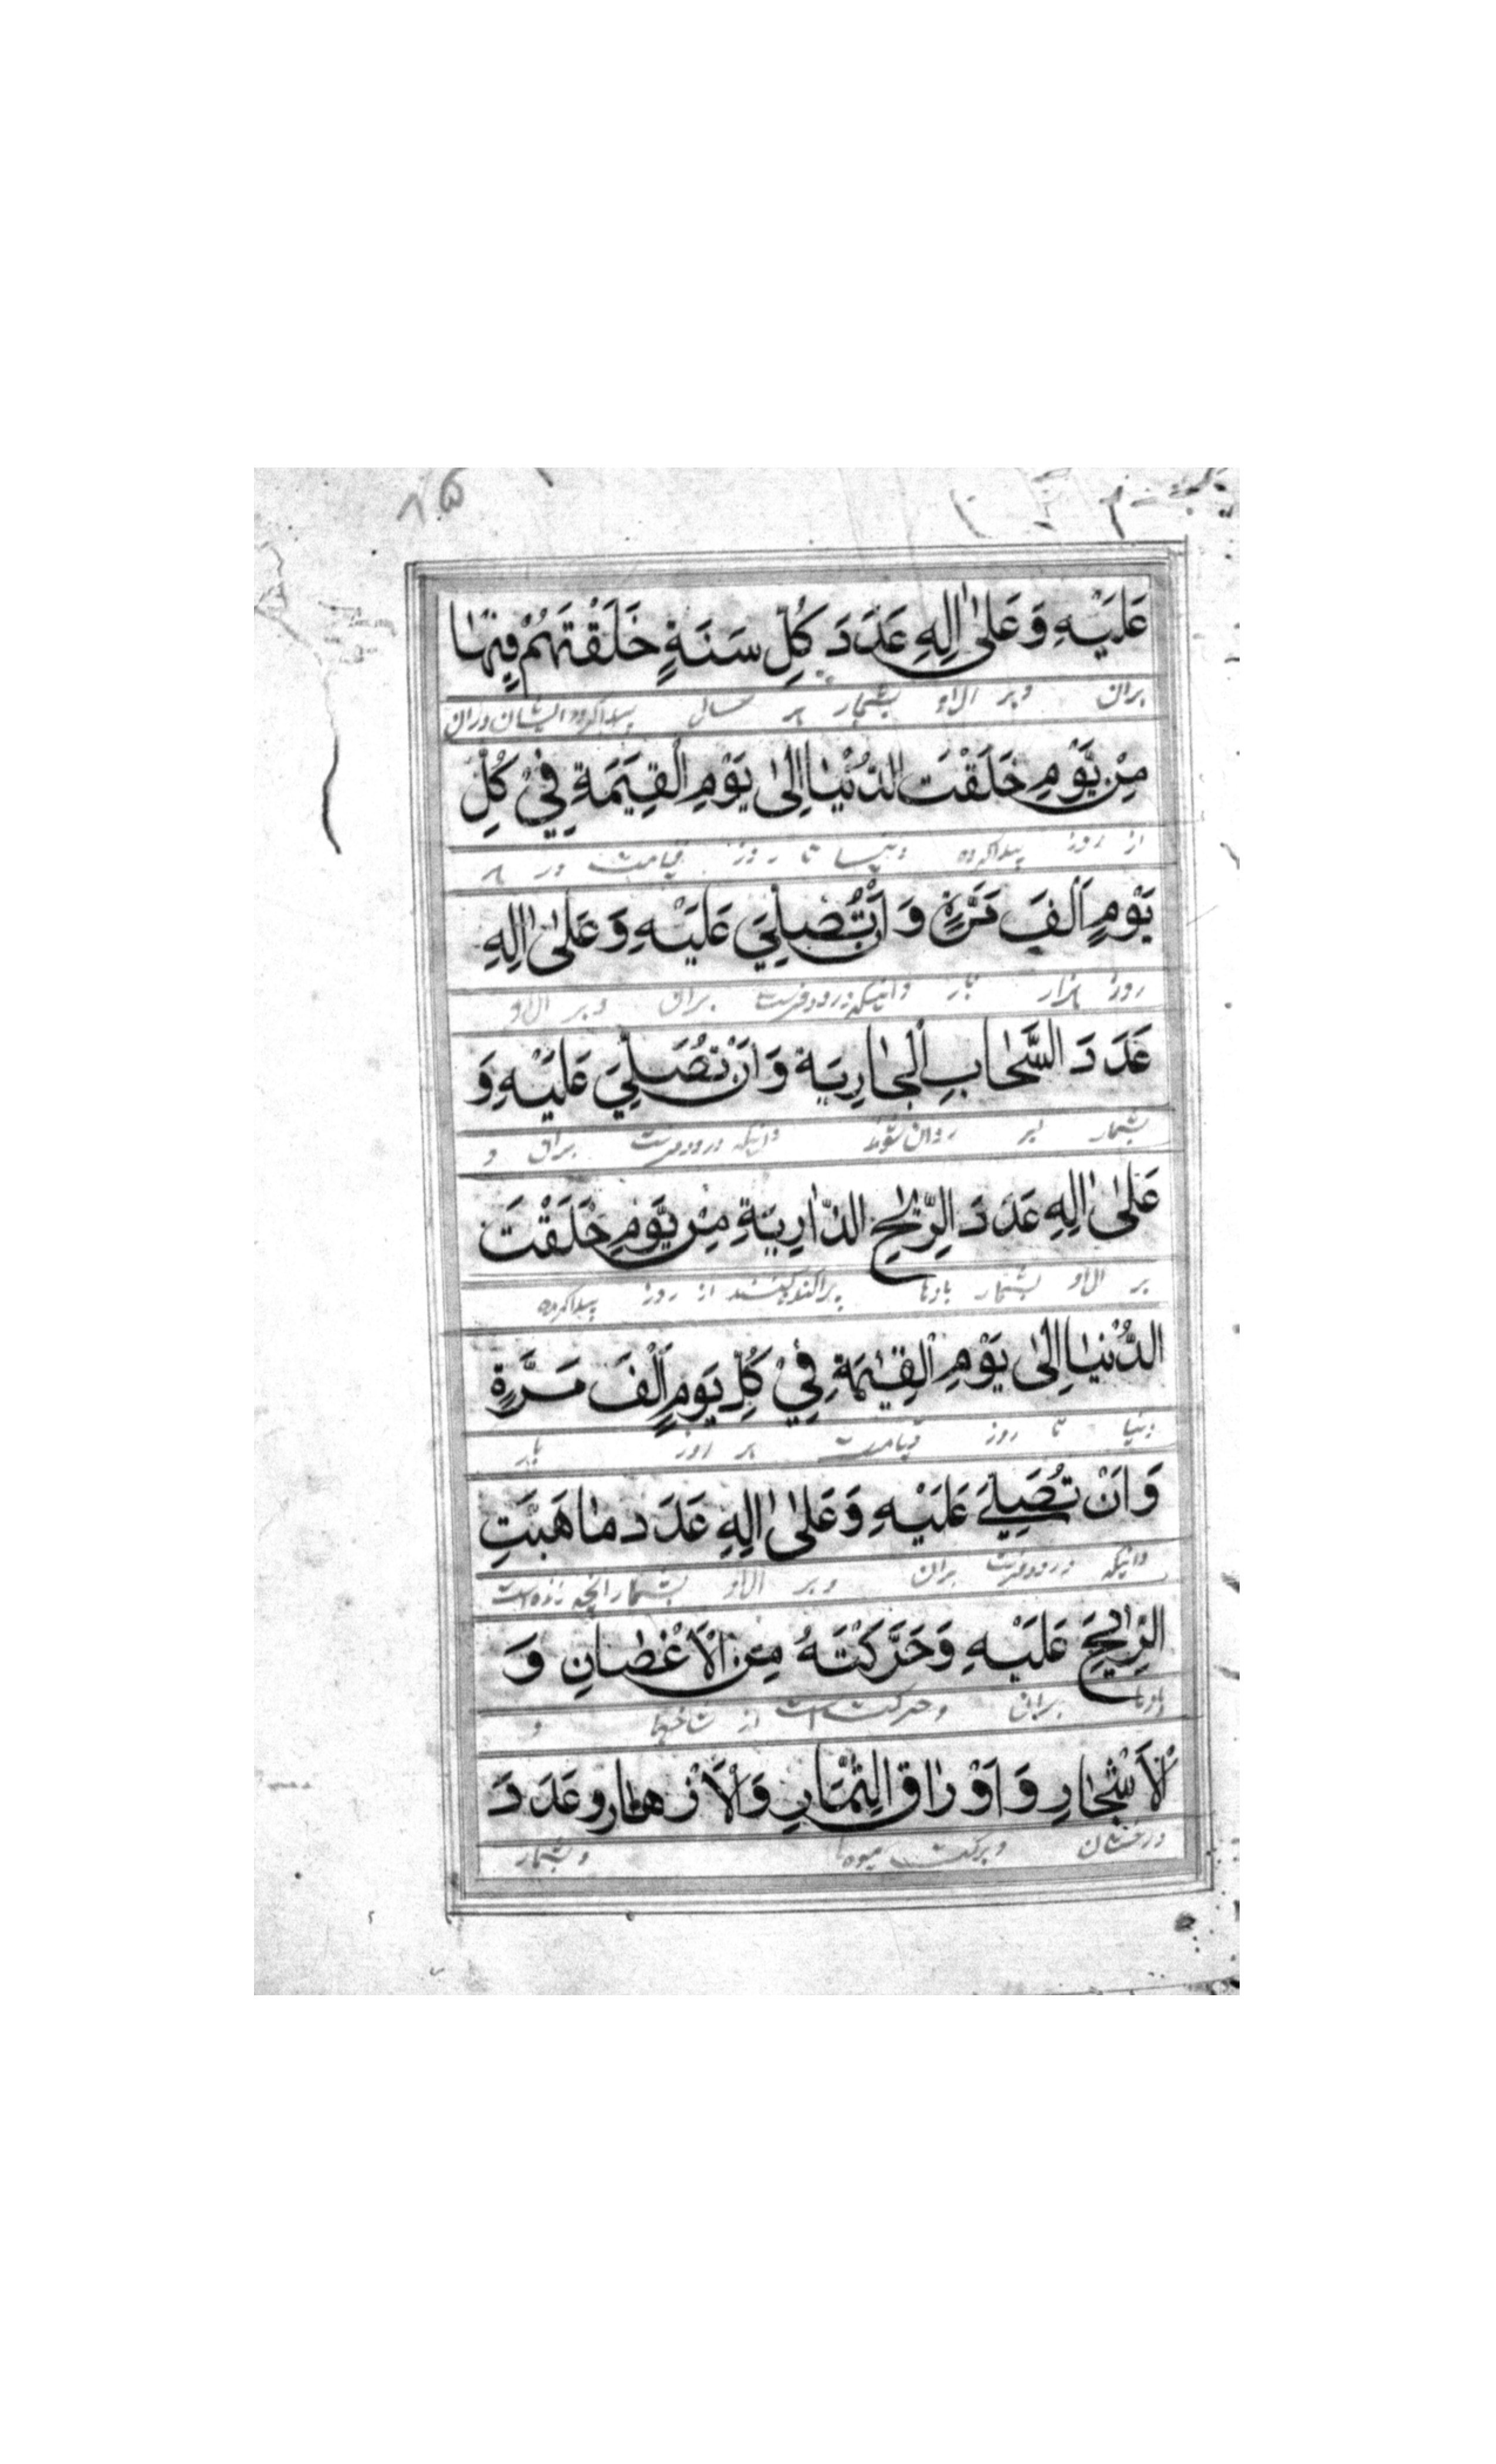 ۸۵
عَلَيْهِ وَعَلىٰ اٰلِهِ عَدَدَ كُلِّ سَنَةٍ خَلَقْتَهُمْ فِيْهَا
بران وبر ال او بشمار هر سال پیدا کرده ایشان دران
مِنْ يَوْمِ خَلَقْتَ الدُّنْيَا اِلىٰ يَوْمِ الْقِيٰمَةِ فِيْ كُلِّ
از روز پیدا کرده دنیا تا روز قیامت در هر
يَوْمٍ اَلْفَ مَرَّةٍ وَ اَنْ تُصَلِّيَ عَلَيْهِ وَ عَلىٰ اٰلِهِ
روز هزار بار وانیکه درود فرست بران وبر ال او
عَدَدَ السَّحَابِ الْجَارِيَةِ وَ اَنْ تُصَلِّيَ عَلَيْهِ وَ
بشمار ابر روان شونده وانیکه درود فرست بران و
عَلىٰ اٰلِهِ عَدَدَ الرِّيٰحِ الذَّارِيَةِ مِنْ يَوْمِ خَلَقْتَ
بر ال او بشمار بادها پراکنده کنند از روز پیدا کرده
الدُّنْيَا اِلىٰ يَوْمِ الْقِيٰمَةِ فِيْ كُلِّ يَوْمٍ اَلْفَ مَرَّةٍ
دنیا تا روز قیامت هر روز بار
وَ اَنْ تُصَلِّيَ عَلَيْهِ وَ عَلىٰ اٰلِهِ عَدَدَ مَا هَبَّتِ
وانیکه درود فرست بران وبر ال او بشمار انچه زده است
الرِّيٰحُ عَلَيْهِ وَحَرَّكَتْهُ مِنَ الْاَغْصَانِ وَ
بادها بران وحرکت است از شاخها و
الْاَشْجَارِ وَ اَوْرَاقِ الثِّمَارِ وَالْاَزْهَارِ وَعَدَدَ
درختان وبرکت میوه ها وبشمار